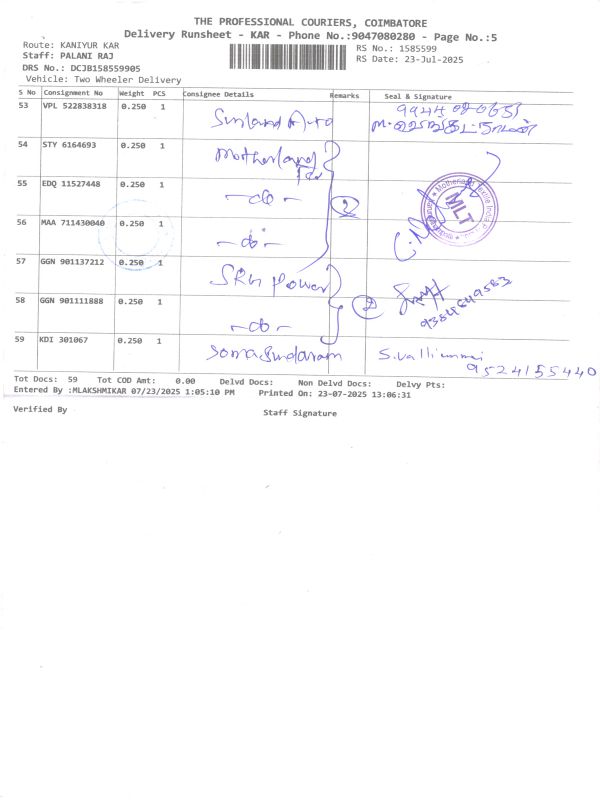 THE PROFESSIONAL COURIERS, COIMBATORE
Delivery Runsheet - KAR - Phone No.:9047080280 - Page No.:5
Route: KANIYUR KAR
Staff: PALANI RAJ
DRS No.: DCJB158559905
Vehicle: Two Wheeler Delivery
RS No.: 1585599
RS Date: 23-Jul-2025
S No Consignment No Weight PCS Consignee Details Remarks Seal & Signature
53 VPL 522838318 0.250 1 Sunland Auto
54 STY 6164693 0.250 1 Motherland
55 EDQ 11527448 0.250 1 -do- 2
56 MAA 711430040 0.250 1 -do- MLT
57 GGN 901137212 0.250 1 SRM Power
58 GGN 901111888 0.250 1 -do- 2 9384849583
59 KDI 301067 0.250 1 Somasundaram S.Valliammai
9524155440
Tot Docs: 59 Tot COD Amt: 0.00 Delvd Docs: Non Delvd Docs: Delvy Pts:
Entered By :MLAKSHMIKAR 07/23/2025 1:05:10 PM Printed On: 23-07-2025 13:06:31
Verified By
Staff Signature